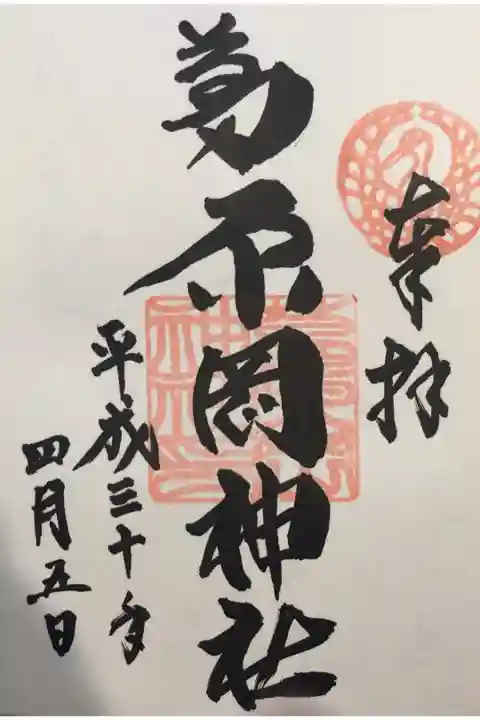 奉拝
葛原岡神社
平成三十年
四月五日